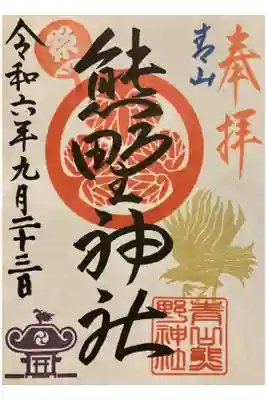 奉拝
青山
熊野神社
青山熊
野神社
令和六年九月二十三日